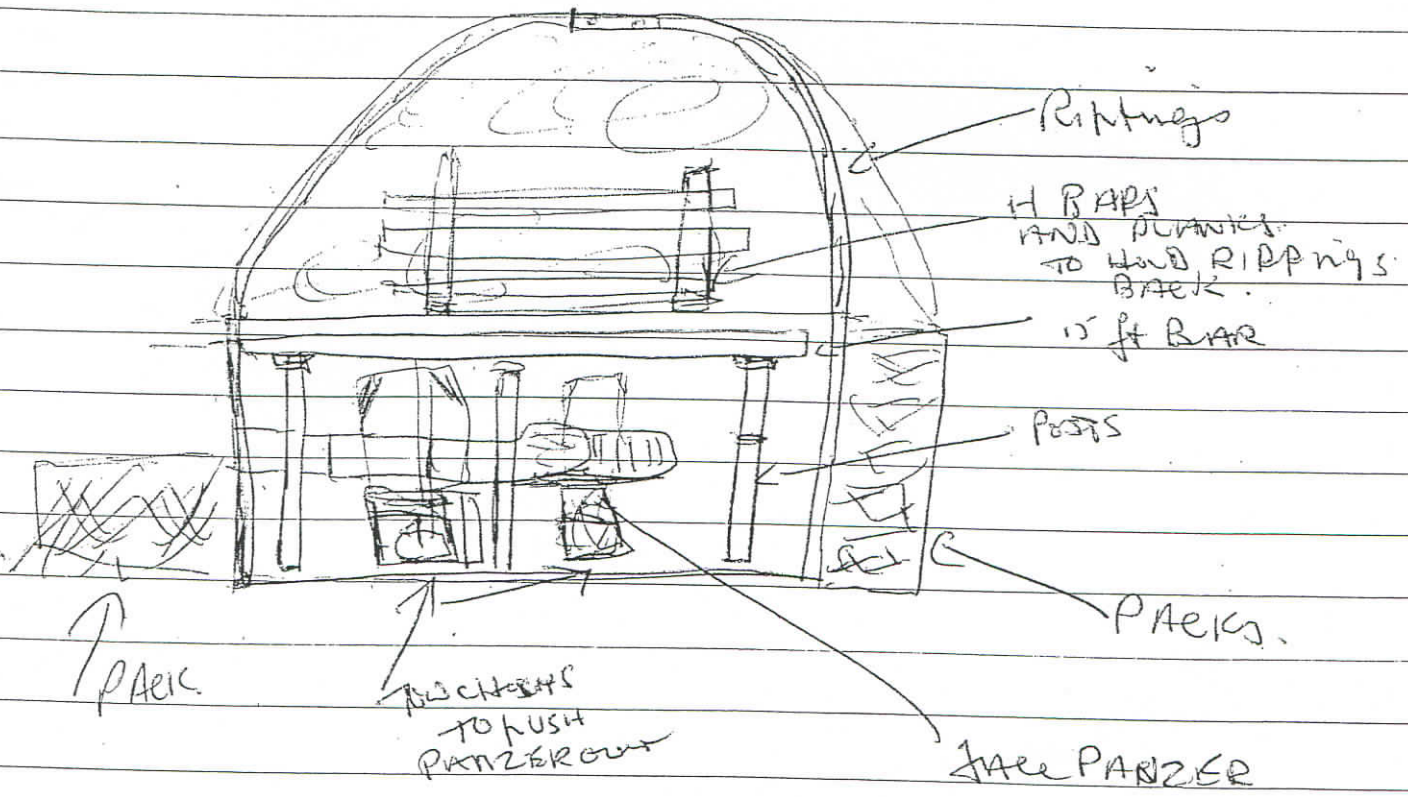 Rippings
H BARS
AND PLANKS
TO HOLD RIPPINGS
BACK.
15 ft BAR
POSTS
PACKS.
PACK
TO PUSH
PANZER OVER
FACE PANZER